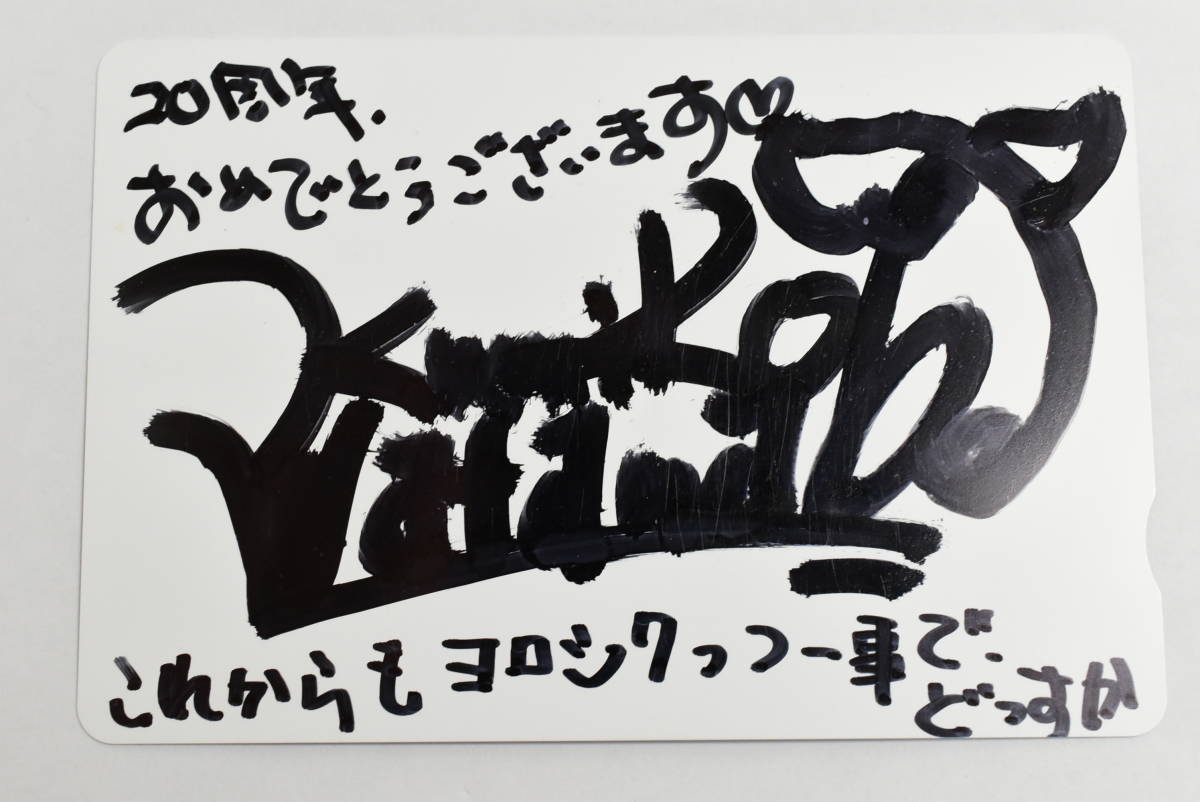 20周年.
おめでとうございます♡
これからもヨロシクっつー事で.
どっすか